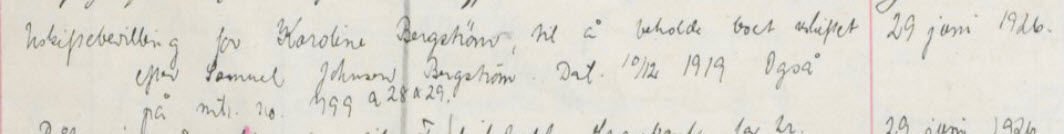 Uskiftebevilling for Karoline Bergstrøm, til å beholde boet uskiftet 29 juni 1926.
efter Samuel Johnsen Bergstrøm. Dat. 10/12 1919 Også
på mtr. no. 499 a 28 a 29.
29 juni 1926